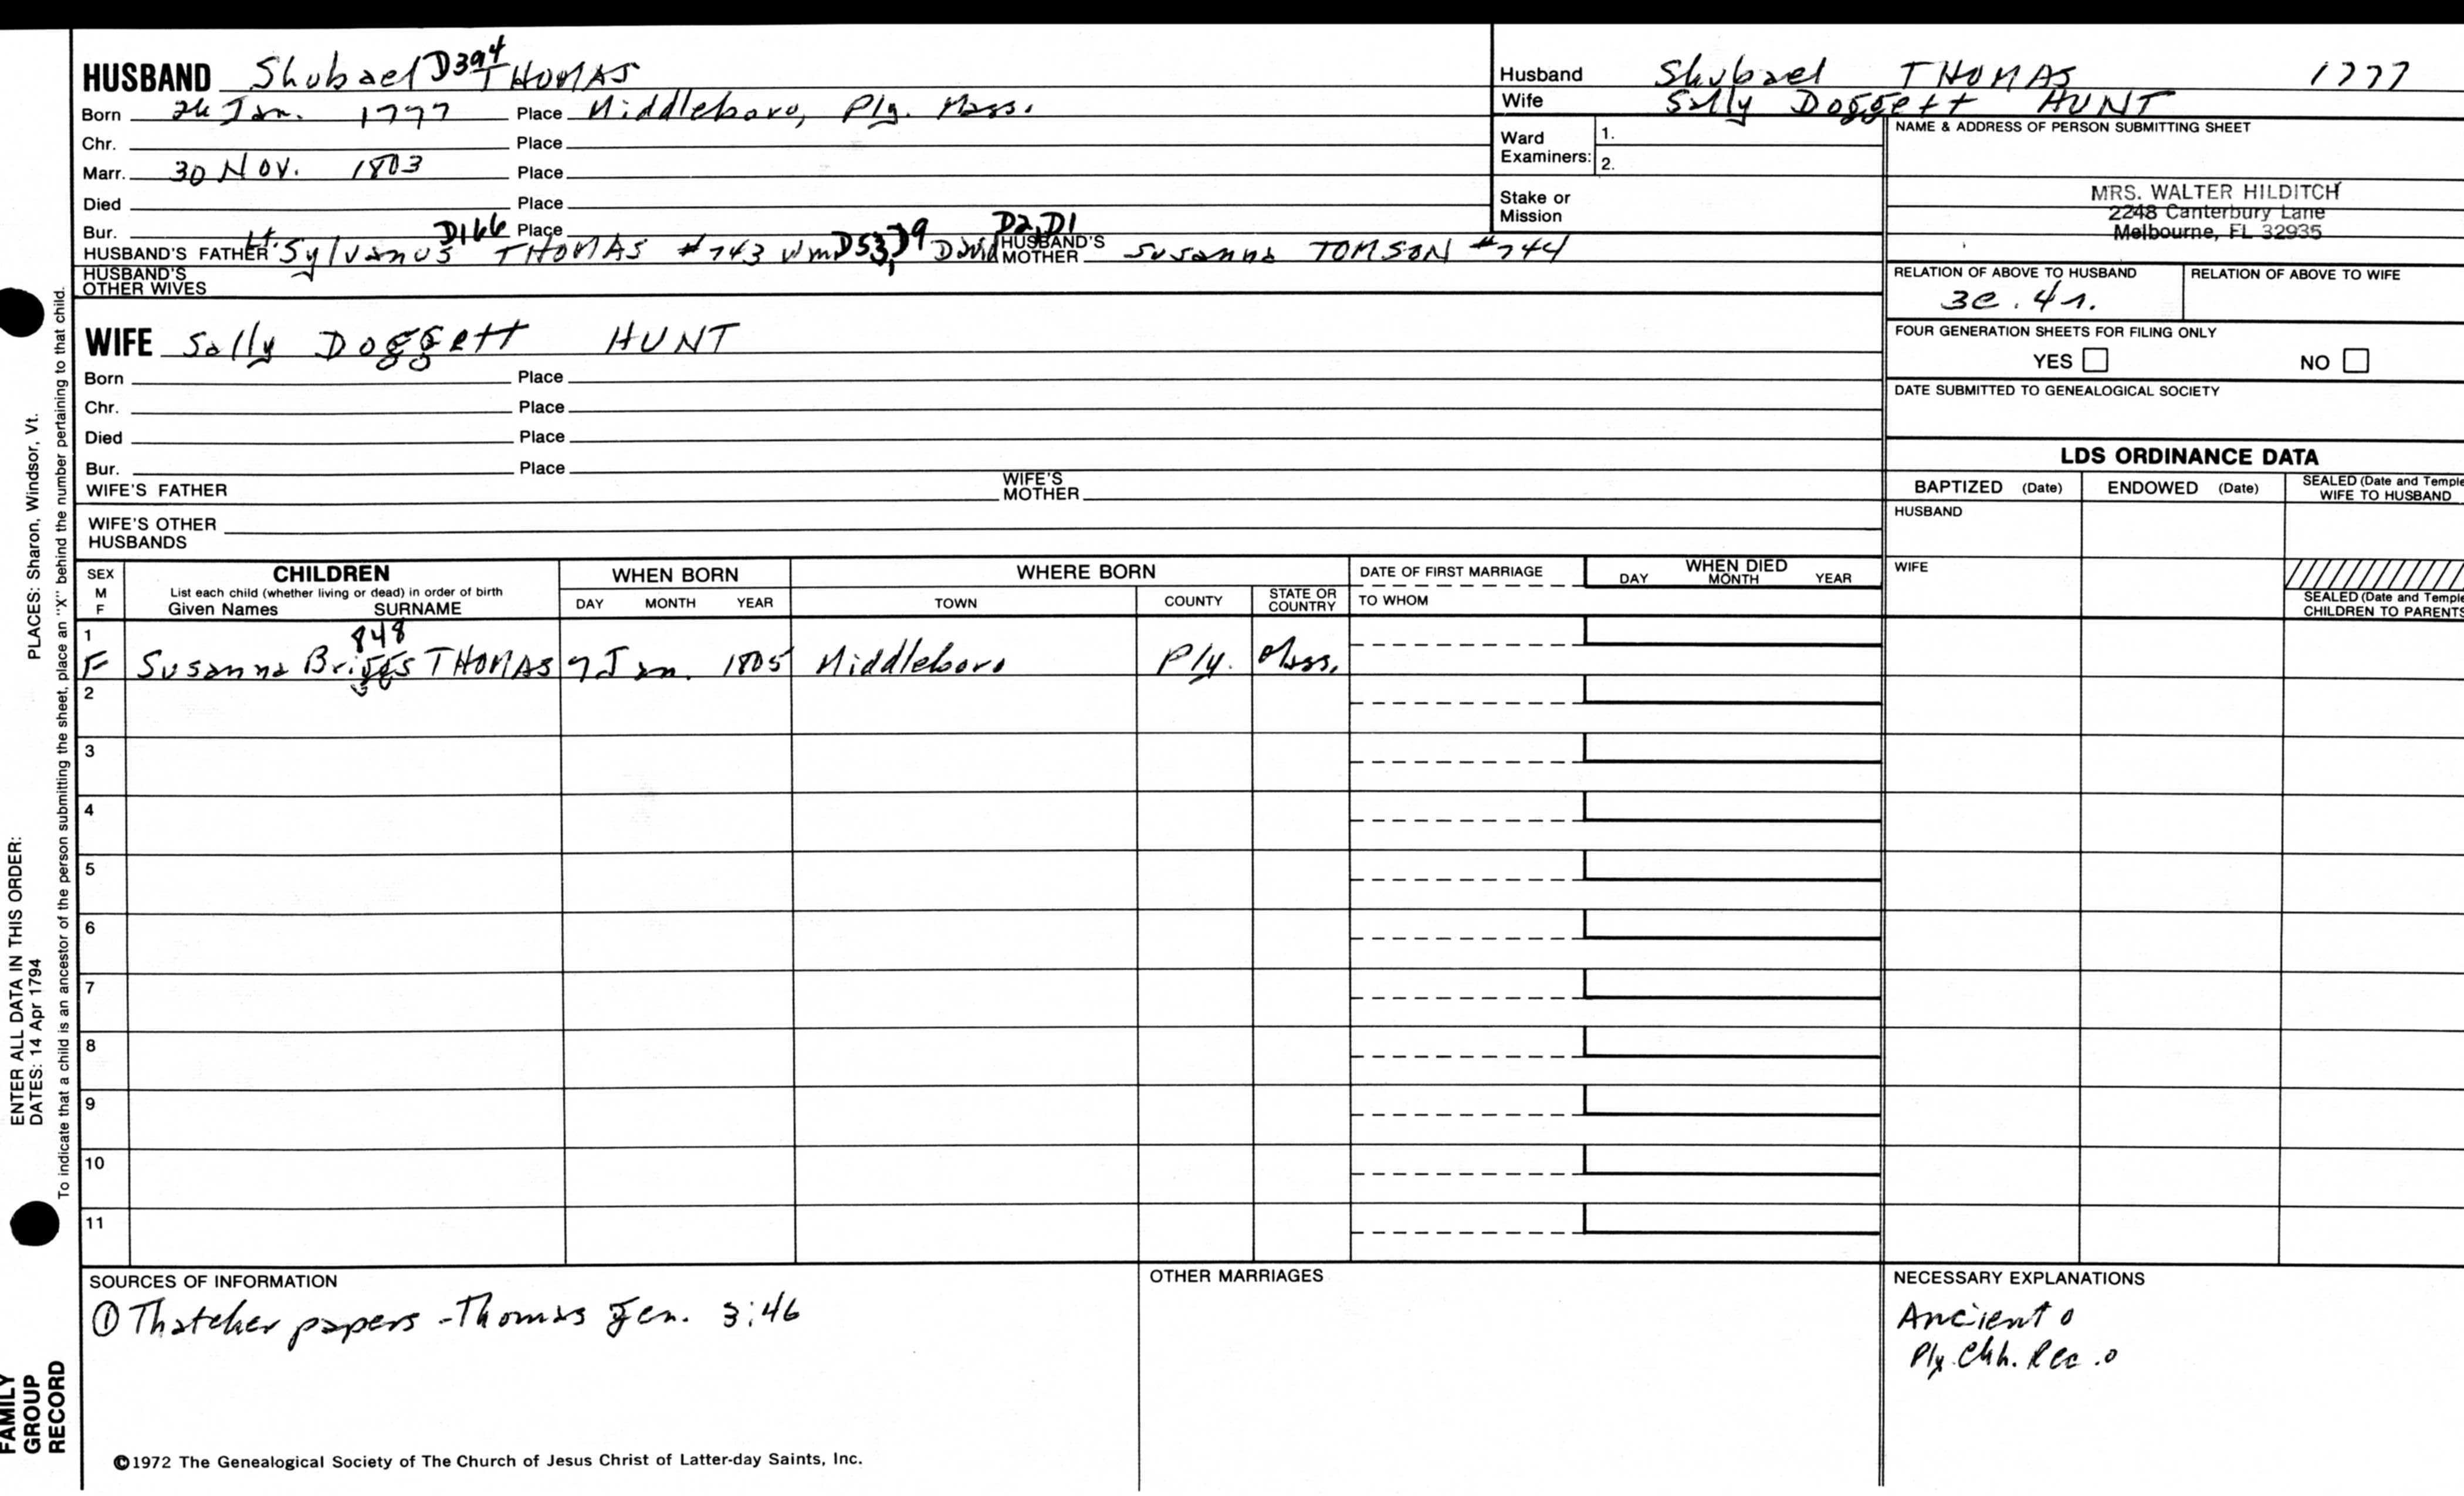 HUSBAND Shubael D394 THOMAS
Born 26 Jan. 1777 Place Middleboro, Ply. Mass.
Chr. Place
Marr. 30 Nov. 1803 Place
Died Place
Bur. Place
HUSBAND'S FATHER Lt. Sylvanus D166 THOMAS #743 Wm D53, D9 David D2, D1 HUSBAND'S MOTHER Susanna TOMSON #744
HUSBAND'S OTHER WIVES
WIFE Sally Doggett HUNT
Born Place
Chr. Place
Died Place
Bur. Place
WIFE'S FATHER WIFE'S MOTHER
WIFE'S OTHER HUSBANDS
Husband Shubael THOMAS 1777
Wife Sally Doggett HUNT
Ward Examiners: 1.
2.
Stake or Mission
NAME & ADDRESS OF PERSON SUBMITTING SHEET
MRS. WALTER HILDITCH
2248 Canterbury Lane
Melbourne, FL 32935
RELATION OF ABOVE TO HUSBAND RELATION OF ABOVE TO WIFE
3c. 4r.
FOUR GENERATION SHEETS FOR FILING ONLY
YES NO
DATE SUBMITTED TO GENEALOGICAL SOCIETY
LDS ORDINANCE DATA
BAPTIZED (Date) ENDOWED (Date) SEALED (Date and Temple
WIFE TO HUSBAND
HUSBAND
WIFE
SEALED (Date and Temple
CHILDREN TO PARENTS
SEX M F
CHILDREN
List each child (whether living or dead) in order of birth
Given Names SURNAME
WHEN BORN
DAY MONTH YEAR
WHERE BORN
TOWN COUNTY STATE OR COUNTRY
DATE OF FIRST MARRIAGE
TO WHOM
WHEN DIED
DAY MONTH YEAR
1
848
F Susanna Briggs THOMAS 7 Jan. 1805 Middleboro Ply. Mass.
2
3
4
5
6
7
8
9
10
11
SOURCES OF INFORMATION
① Thatcher papers - Thomas gen. 3:46
OTHER MARRIAGES
NECESSARY EXPLANATIONS
Ancient o
Ply. Chh. Rec. o
©1972 The Genealogical Society of The Church of Jesus Christ of Latter-day Saints, Inc.
FAMILY
GROUP
RECORD
ENTER ALL DATA IN THIS ORDER:
DATES: 14 Apr 1794
PLACES: Sharon, Windsor, Vt.
To indicate that a child is an ancestor of the person submitting the sheet, place an "X" behind the number pertaining to that child.